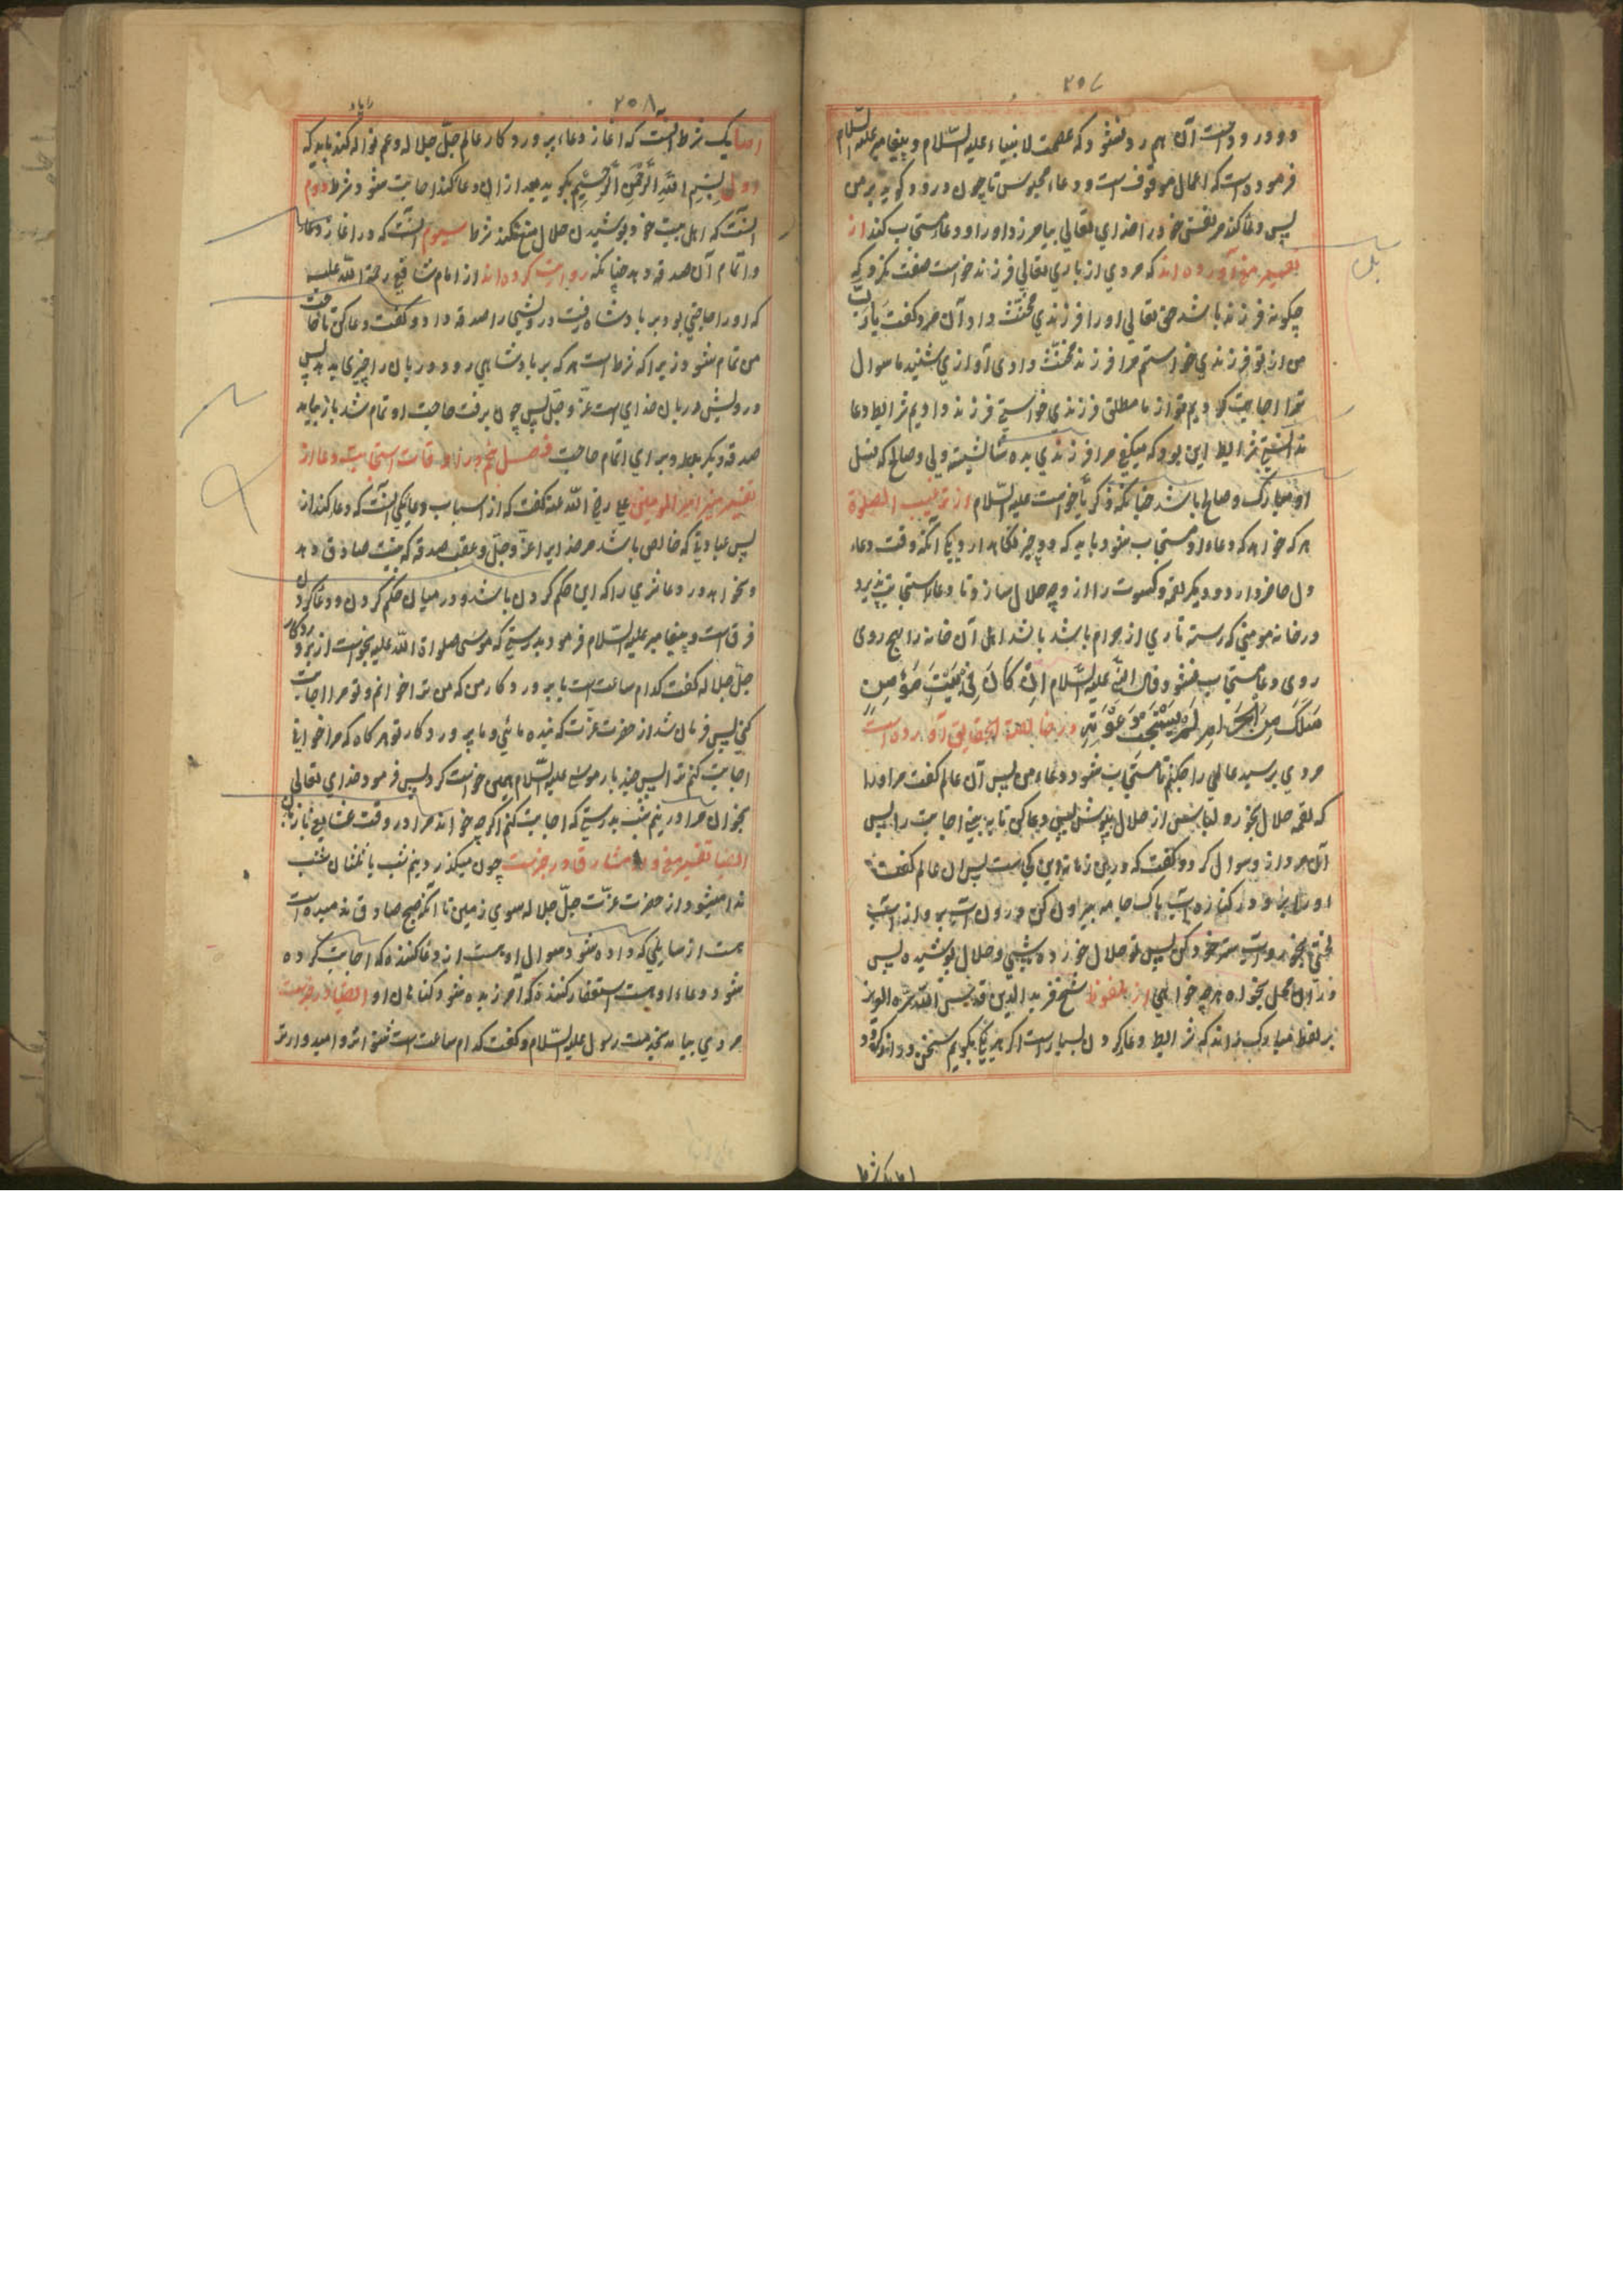 ۲۵۷
فرموده است که اعمال موقوف است و دعاء محبوس تا چون درود گوید بر من
پس دعا کند مر نفس خود را خدای تعالی بیامرزد او را و دعا مستجاب کند از
که مردی از باری تعالی فرزند خواست صفت نکرد که
چگونه فرزند باشد حق تعالی او را فرزندی مخنّث داد آن مرد گفت یا ربّ
من از تو فرزندی خواستم مرا فرزند مخنّث دادی آوازی شنید ما سوال
ترا اجابت کردیم تو از ما مطلق فرزندی خواستی فرزند دادیم شرایط دعا
ندانستی شرایط این بود که میگفتی مرا فرزندی بده شایسته ولی و صالح که نسل
او مبارک و صالح باشد چنانکه زکریا خواست علیه السّلام از ترغیب الصلوة
هر که خواهد که دعاء او مستجاب شود باید که دو چیز نگاهدارد یکی آنکه وقت دعاء
دل حاضر دارد و دیگر لقمه و کسوت را از وجه حلال سازد تا دعا استجابت پذیرد
در خانه مومنی که رسته تاری از حرام باشد باشد اهل آن خانه را هیچ روی
روی دعا مستجاب نشود قال النّبی علیه السّلام اِن کَانَ فِی بَیتِ مَؤمِنٍ
سَلَکٌ مِنَ الحَرَامِ لَم یُستَجَب دَعوَتِهِ در خالصة الحقایق آورده است
مردی پرسید عالمی را چکنم تا مستجاب شود دعاء من پس آن عالم گفت مر او را
که لقمه حلال بخور و لباس از حلال بپوش پس دعا کن تا به بینی اجابت را پس
آن مرد از و سوال کرد و گفت که درین زمانه این کجاست پس آن عالم گفت
شیخ فرید الدین قدس الله سرّه العزیز
بر لفظ مبارک راند که شرایط دعا کردن بسیار است اگر هر یکی بگویم سخن
اما یک شرط
۲۵۸
اما یک شرط آنست که آغاز دعاء پروردگار عالم جلّ جلاله و عم نواله کند باید که
اول بِسْمِ اللّهِ الرَّحْمنِ الرَّحِیْمِ بگوید بعد از آن دعا کند اجابت شود شرط دوم
آنست که اهل بیت خود پوشیدن حلال منع نکند شرط سیوم آنست که در آغاز دعا
و اتمام آن صدقه دهد چنانکه روایت کرده اند از امام شافعی رحمة الله علیه
که او را حاجتی بود بر بادشاه رفت درویشی را صدقه داد و گفت دعا کن تا حاجت
من تمام شود زیرا که شرط است هر که بر بادشاهی رود دربان را چیزی باید پس
درویش دربان خدای است عزّ و جلّ پس چون برفت حاجت او تمام شد باز بیامد
صدقه دیگر بداد برای اتمام حاجت فصل پنجم در اوقات استجابت دعا از
تفسیر امیر المومنین علی رضی الله عنه گفت که از اسباب دعا یکی آنست که دعا کند از
پس عبادتی که خالص باشد مر خدایرا عزّ و جلّ و عقب صدقه که به نیت صادق دهد
و بخواهد در دعا چیزی را که این حکم کردن باشد و در میان حکم کردن و دعا کردن
فرق است و پیغامبر علیه السّلام فرمود بدرستی که موسی صلواة الله علیه بخواست از پروردگار
جلّ جلاله گفت کدام ساعت است یا پروردگار من که من ترا خوانم و تو مرا اجابت
کنی پس فرمان شد از حضرت عزّت که بنده مائی و ما پروردگار تو هر گاه که مرا خوانی
اجابت کنم ترا پس چند بار موسی علیه السّلام همین خواست کرد پس فرمود خدای تعالی
بخوان مرا در نیم شب بدرستی که اجابت کنم اگرچه خواند مرا در وقت
ایضا تفسیر مغنی و مشارق در خبرست چون میگذرد نیم شب یا ثلثان شب
ندا میشود از حضرت عزّت جلّ جلاله سوی زمین تا آنکه صبح صادق بدمیده است
هست از سایلی که داده شود سوال او هست از دعا کننده که اجابت کرده
شود دعاء او هست استغفار کننده که آمرزیده شود گناهان او ایضا در خبرست
مردی بیامد بخدمت رسول علیه السّلام و گفت کدام ساعت است شنواتر و امیدوارتر